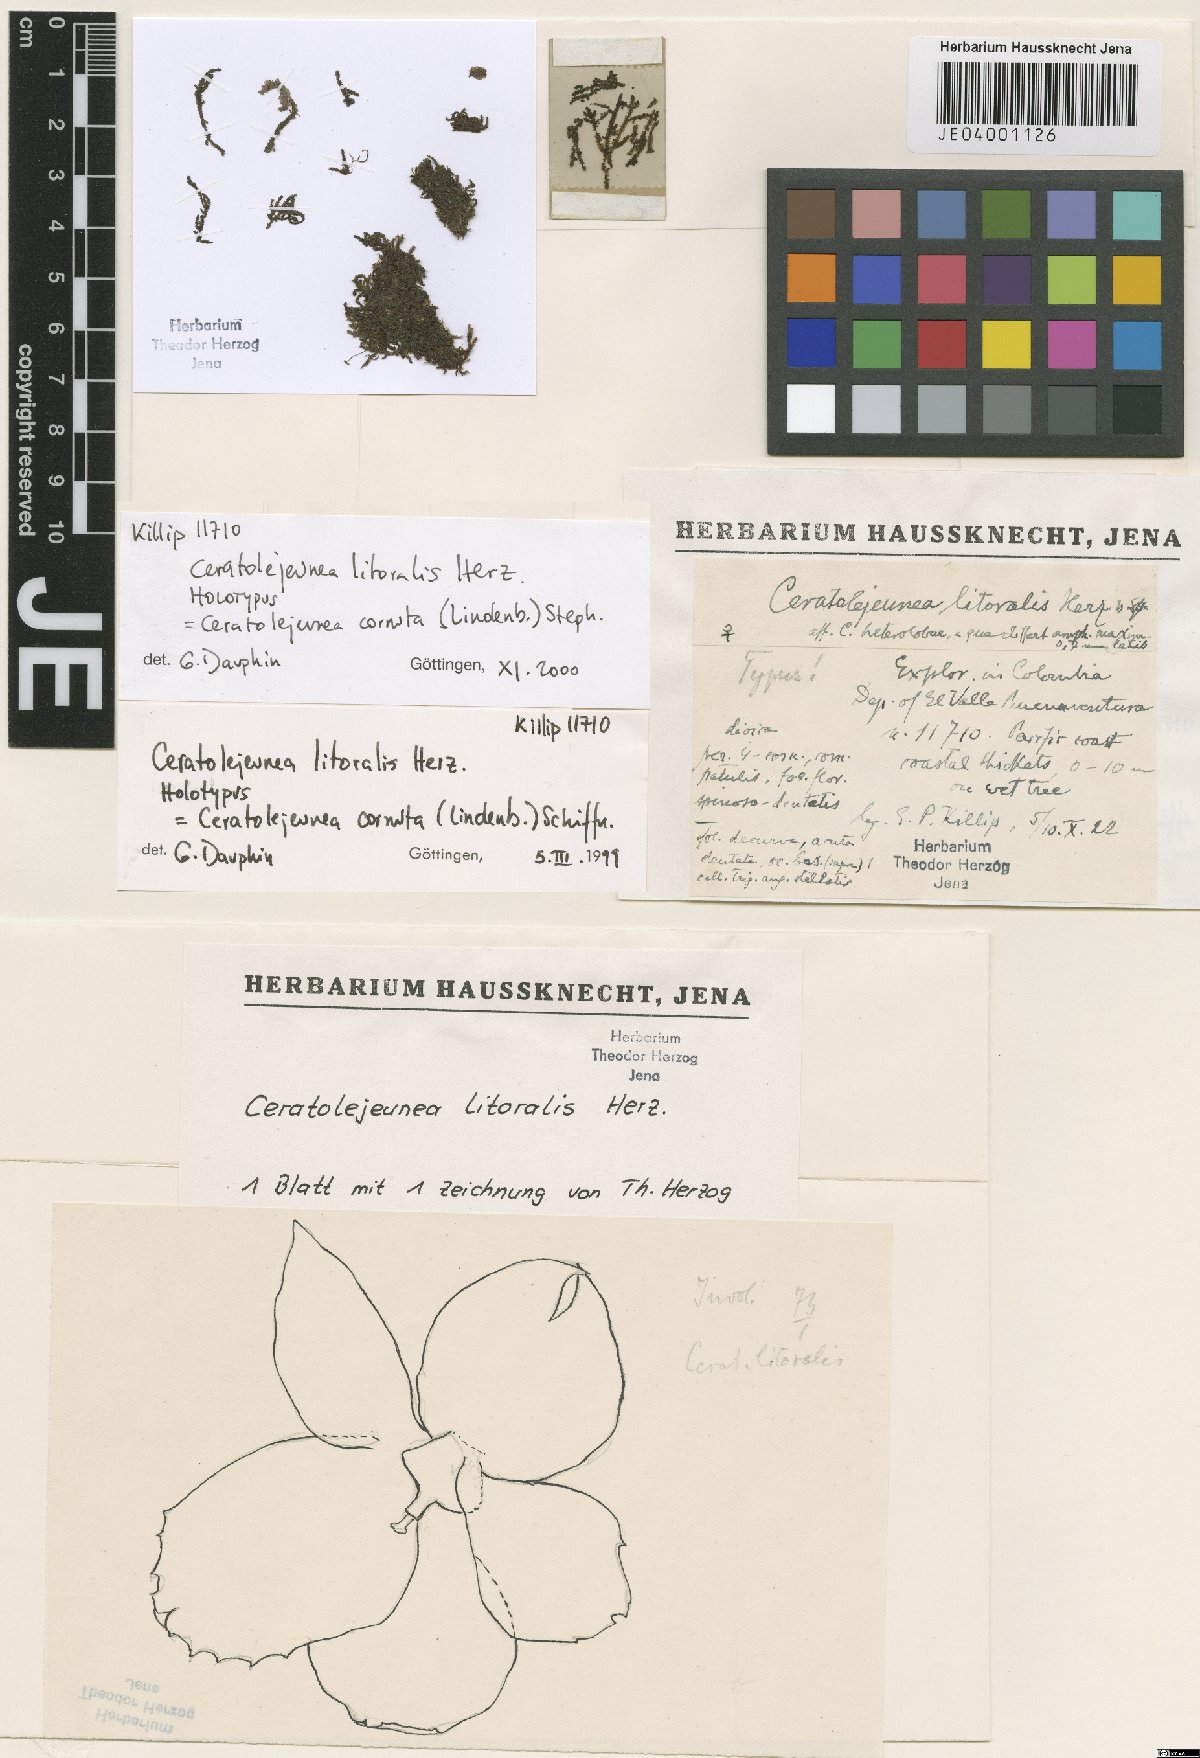 cm
0
1
2
3
4
5
6
7
8
9
10
copyright reserved
JE
Herbarium
Theodor Herzog
Jena
Herbarium Haussknecht Jena
JE04001126
Killip 11710
Ceratolejeunea litoralis Herz.
Holotypus
= Ceratolejeunea cornuta (Lindenb.) Steph.
det. G. Dauphin Göttingen, XI. 2000
Killip 11710
Ceratolejeunea litoralis Herz.
Holotypus
= Ceratolejeunea cornuta (Lindenb.) Schiffn.
det. G. Dauphin Göttingen, 5. III. 1999
HERBARIUM HAUSSKNECHT, JENA
Ceratolejeunea litoralis Herz
♀ aff. C. heterolobae, a qua differt amph. maxim.
Typus! Explor. in Colombia
Dep. of El Valle Buenaventura
dioica n. 11710. Pacific coast
coastal thickets, 0-10 m
patulis, fol. flor. on wet tree
spinoso-dentatis
lg. E. P. Killip, 5/10. X. 22
fol. decurva, acuta
dentata, oc. bas. (supra) 1
cell. trig. ang. stellatis
Herbarium
Theodor Herzog
Jena
HERBARIUM HAUSSKNECHT, JENA
Herbarium
Theodor Herzog
Jena
Ceratolejeunea litoralis Herz.
1 Blatt mit 1 Zeichnung von Th. Herzog
Invol. 73
1
Cerat. litoralis
Herbarium
Theodor Herzog
Jena